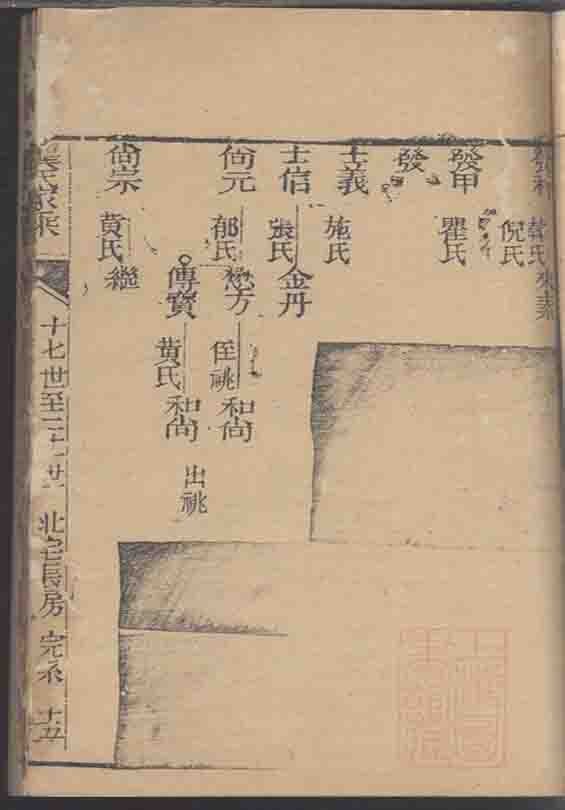 韓氏
倪氏
發甲
瞿氏
發
士義
施氏
士信
張氏
金丹
尙元
郁氏
懋方
侄祧
和尙
傳寶
黃氏
和尙
出祧
尙宗
黃氏
繼
家乘
十七世至二十一世 北宅長房 完系 十五